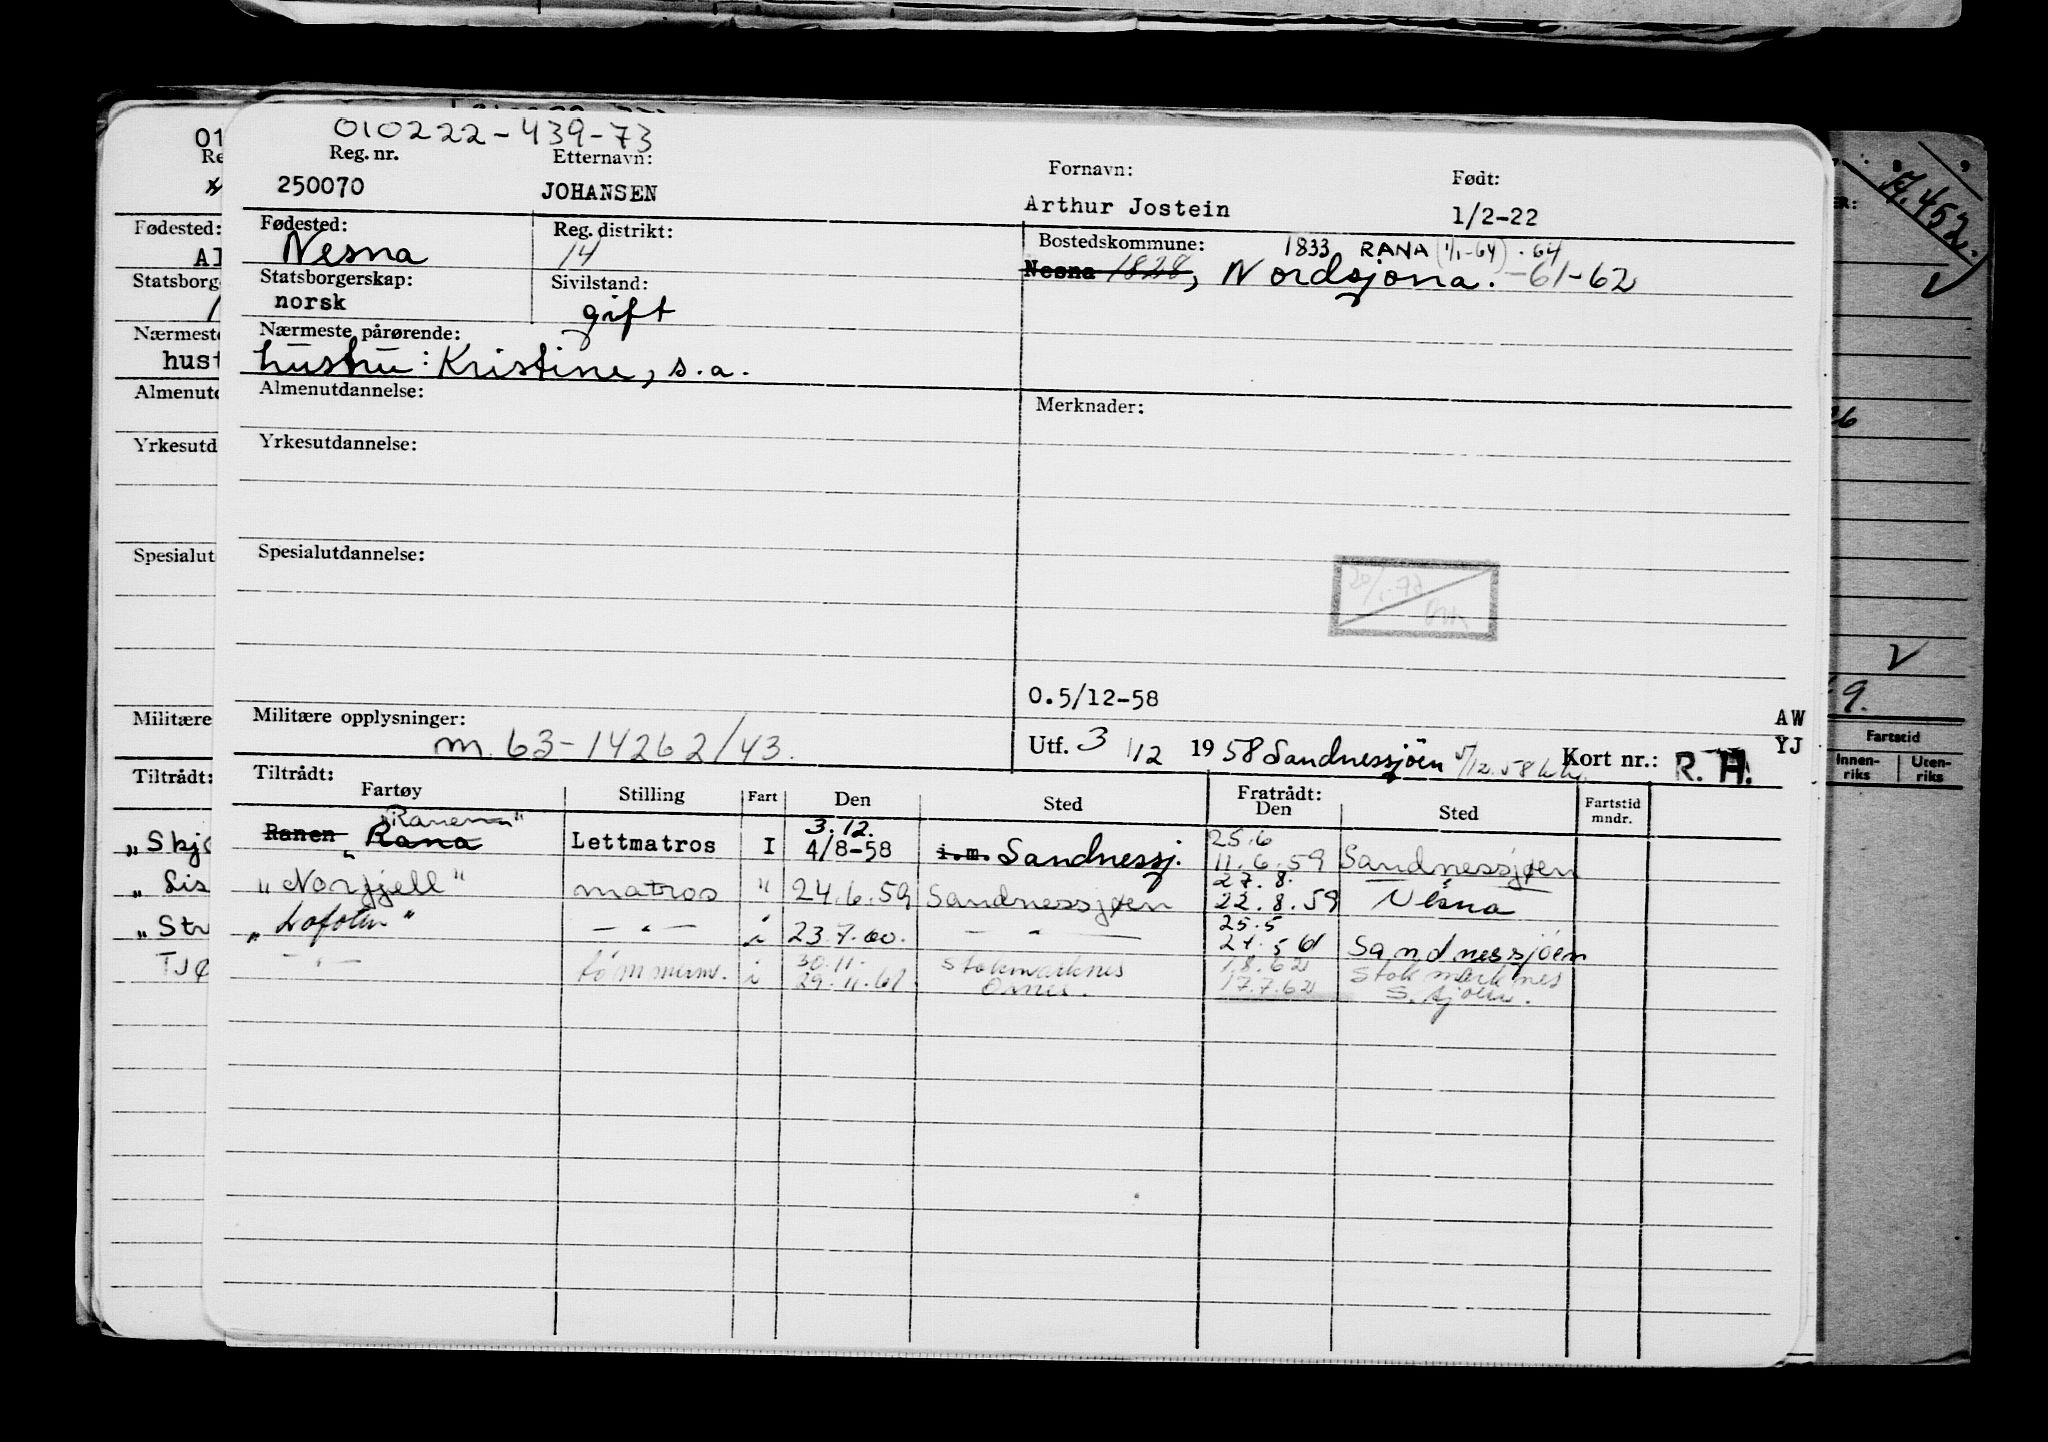 010222-439-73
Reg. nr. Etternavn: Fornavn: Født:
250070 JOHANSEN Arthur Jostein 1/2-22
Fødested: Reg. distrikt: Bostedskommune: 1833 RANA (1/1-64) · 64
Nesna 14 Nesna 1828, Nordsjona. -61-62
Statsborgerskap: Sivilstand:
norsk gift
Nærmeste pårørende:
hustru: Kristine, s.a.
Almenutdannelse: Merknader:
Yrkesutdannelse:
Spesialutdannelse:
O.5/12-58
Militære opplysninger: AW
m. 63-14262/43. Utf. 3/12 1958 Sandnessjöen 5/12.58 Kort nr.: R. H. YJ
Tiltrådt: Fratrådt:
Fartøy Stilling Fart Den Sted Den Sted Fartstid mndr.
"Ranen" 3.12. 25.6
Ranen Rana Lettmatros I 4/8-58 i.m. Sandnessj. 11.6.59 Sandnessjøen
27.8.
"Norfjell" matros " 24.6.59 Sandnessjøen 22.8.59 Nesna
25.5
"Lofoten" — " — i 23.7.60. — " — 21.5 61 Sandnessjöen
— " — tømmerm. i 30.11. Stokmarknes 1.8.62 Stokmarknes
29.11.61 Ørnes. 17.7.62 S.sjøen.
01
Re
Fødested:
Al
Statsborge
Nærmeste
hust
Almenutd
Yrkesutd
Spesialut
Militære
Tiltrådt:
"Skjo
"Lis
"Str
TJØ
ER:
26
9.
Fartstid
Innen-riks Uten-riks